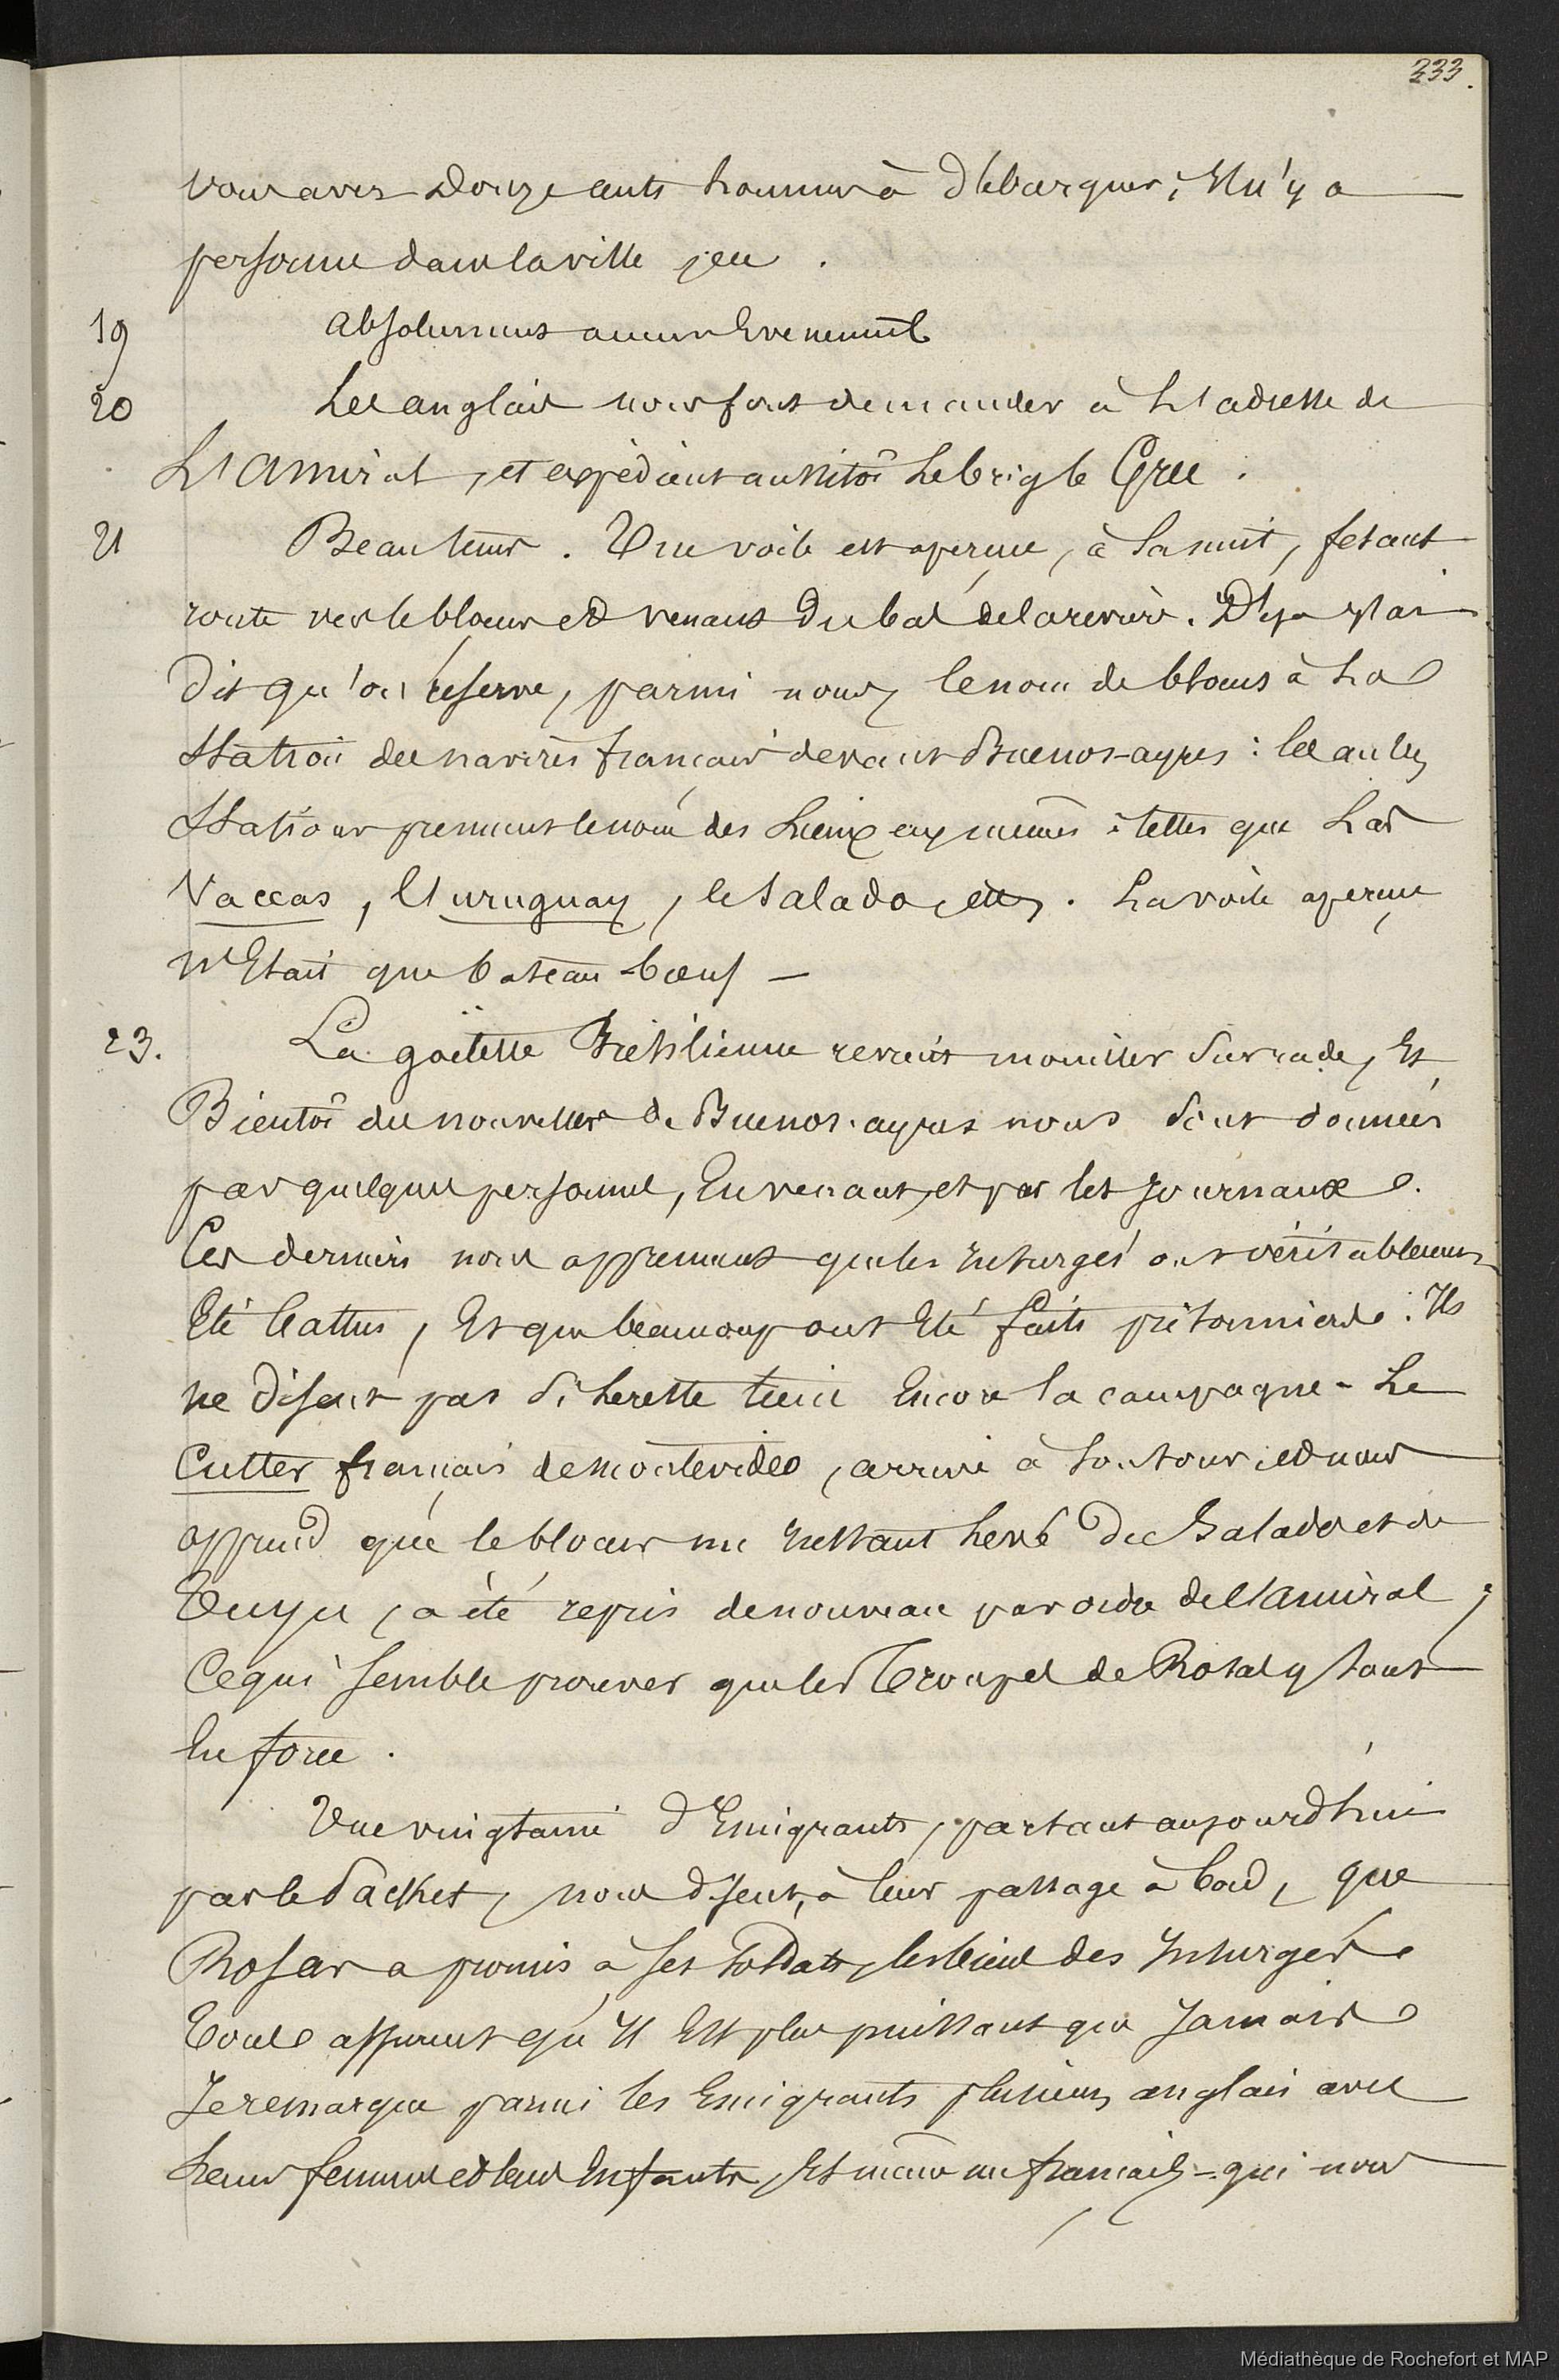 333.
vous avez Douze cents hommes à débarquer; Il n'y a
personne dans la ville
19 absolument aucun Evenement
20 Les anglais nous font demander à L'adresse de
L'Amiral, et expédient aussitôt Le brig le
21 Beau tems. Une voile est aperçue, à La nuit, fesant
route vers le blocus et venant Du bas de la rivière. Déja j'ai
Dit qu'on réserve, parmi nous, le nom de blocus à La
Station des navires français devant Buenos-ayres : les autres
Stations prennent le nom des Lieux eux mêmes : telles que Las
Vaccas, L'uruguay, le Salado, etc. La voile aperçue
n'Etait que bateau bœuf —
23. La goëlette Brésilienne revient mouiller Sur rade, Et
Bientôt des nouvelles de Buenos-ayres nous Sont données
par quelques personnes, En venant, et par les Journaux.
Ces derniers nous apprennent que les Insurgés ont véritablement
Eté battus, Et que beaucoup ont Eté faits prisonniers : Ils
ne disent pas Si tient Encore la campagne - Le
Cutter français de montevideo, arrive à Son tour, et nous
apprend que le blocus un Instant Levé Du Salado et du
Tuyu, a été repris de nouveau par ordre de L'Amiral;
Ce qui Semble prouver que les Troupes de Rosas y Sont
En force.
Une vingtaine d'Emigrants, partant aujourd'hui
par le Packet, nous disent, à leur passage à bord, que
Rosas a promis à ses Soldats, les biens des Insurgés
Tous assurent qu'Il Est plus puissant que Jamais
Je remarque parmi les Emigrants plusieurs anglais avec
Leurs femmes et leurs Enfants, Et même un français - qui nous
Médiathèque de Rochefort et MAP